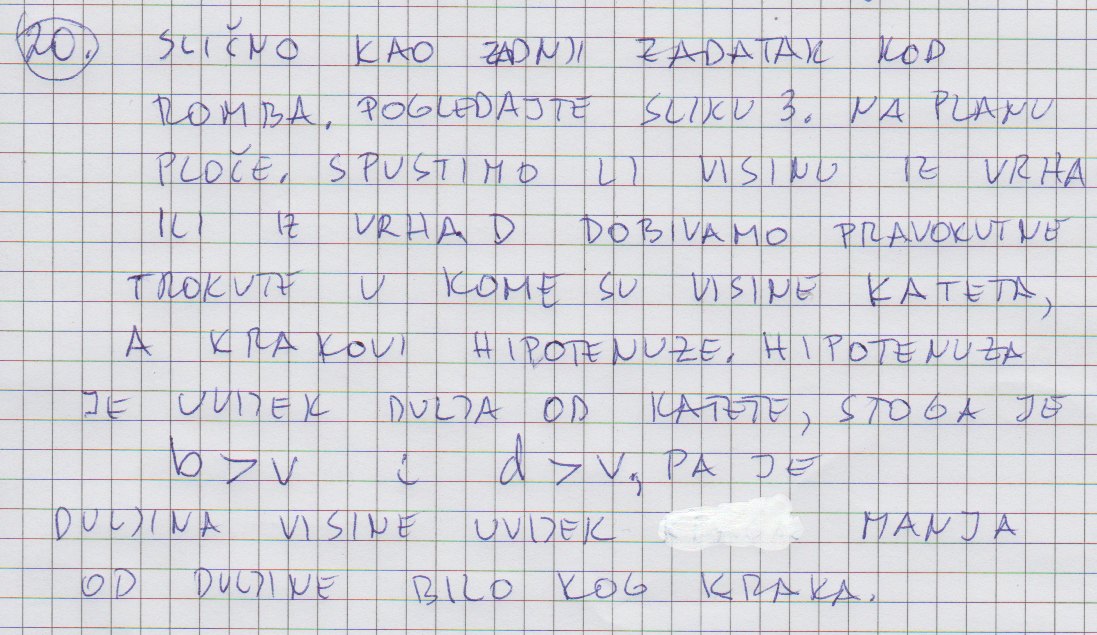 20. SLIČNO KAO ZADNJI ZADATAK KOD
ROMBA. POGLEDAJTE SLIKU 3. NA PLANU
PLOČE. SPUSTIMO LI VISINU IZ VRHA
ILI IZ VRHA D DOBIVAMO PRAVOKUTNE
TROKUTE U KOME SU VISINE KATETA,
A KRAKOVI HIPOTENUZE. HIPOTENUZA
JE UVIJEK DULJA OD KATETE, STOGA JE
b > v i d > v, PA JE
DULJINA VISINE UVIJEK MANJA
OD DULJINE BILO KOG KRAKA.